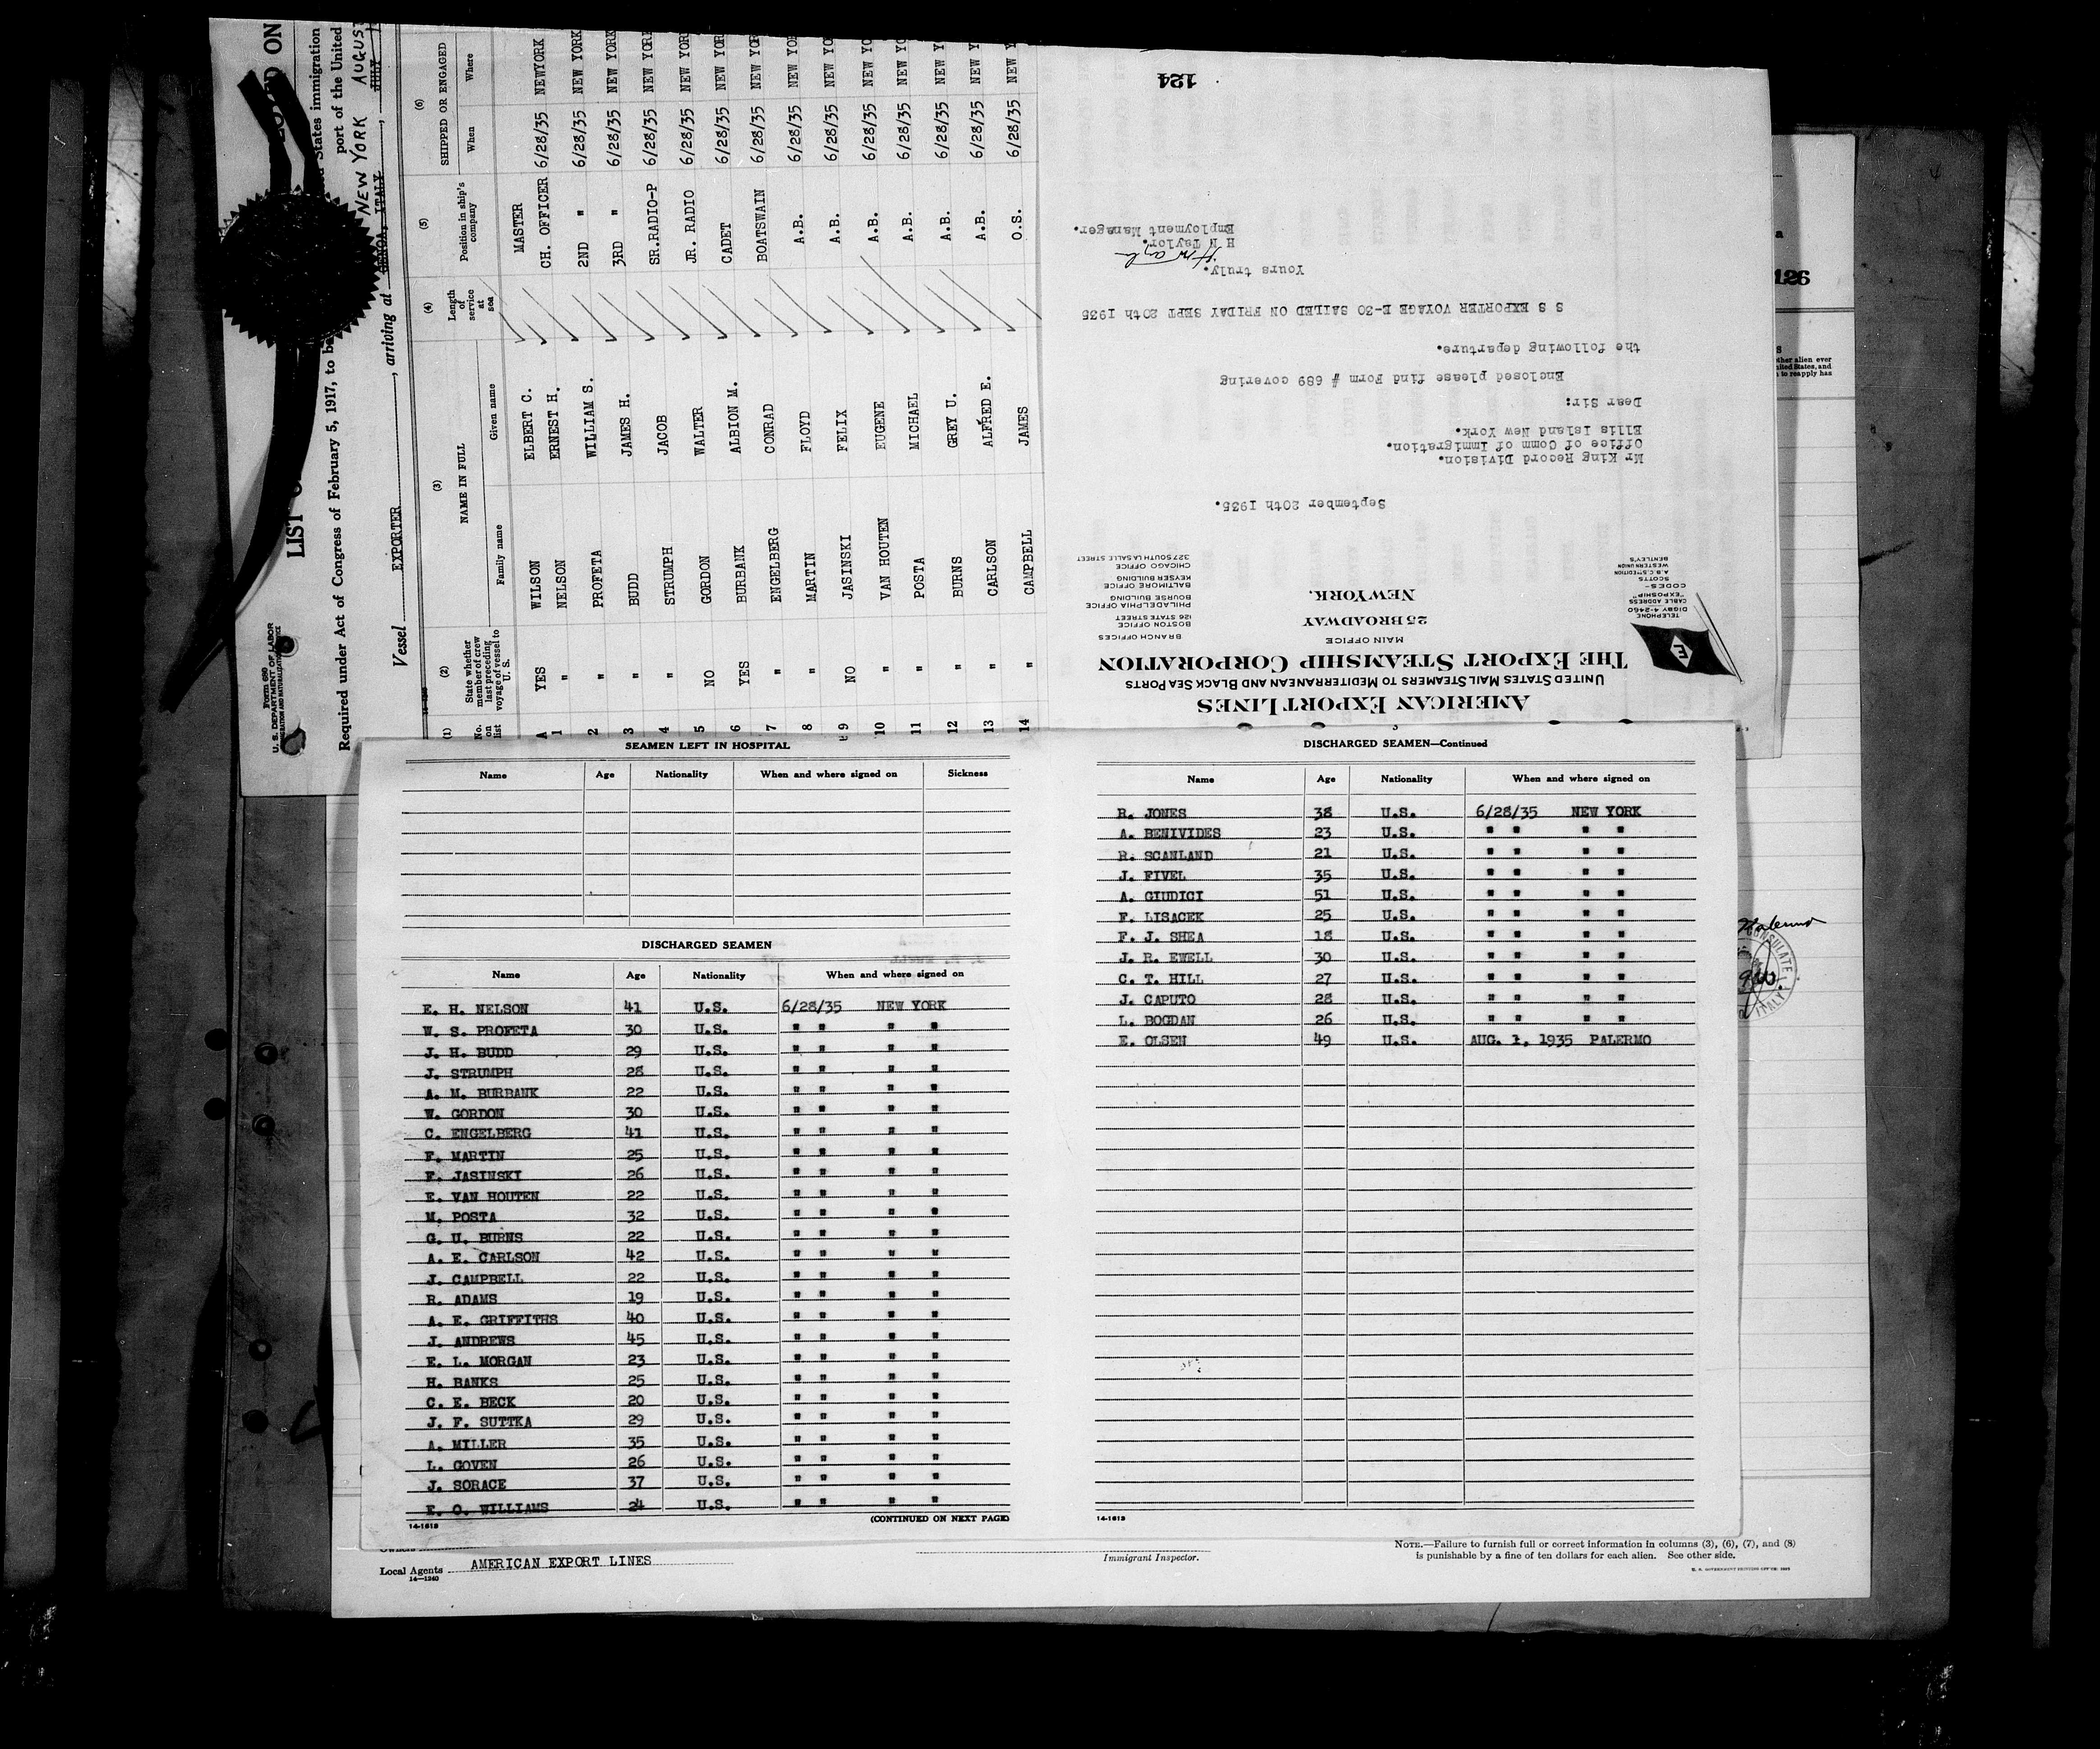 LIST
ON
States immigration
Required under Act of Congress of February 5, 1917, to be
port of the United
Vessel EXPORTER, arriving at GENOA, ITALY, NEW YORK AUGUST
JULY
Form 680
U. S. DEPARTMENT OF LABOR
IMMIGRATION AND NATURALIZATION SERVICE
(1) (2) (3) (4) (5) (6)
No. on list State whether member of crew last preceding voyage of vessel to U. S. NAME IN FULL Length of service at sea Position in ship's company SHIPPED OR ENGAGED
Family name Given name When Where
A YES WILSON ELBERT C. MASTER
1 " NELSON ERNEST H. CH. OFFICER 6/28/35 NEWYORK
2 " PROFETA WILLIAM S. 2ND " 6/28/35 NEW YORK
3 " BUDD JAMES H. 3RD " 6/28/35 NEW YORK
4 " STRUMPH JACOB SR.RADIO-P 6/28/35 NEW YORK
5 NO GORDON WALTER JR. RADIO 6/28/35 NEW YORK
6 YES BURBANK ALBION M. CADET 6/28/35 NEW YOR
7 " ENGELBERG CONRAD BOATSWAIN 6/28/35 NEW YOR
8 " MARTIN FLOYD A.B. 6/28/35 NEW YO
9 NO JASINSKI FELIX A.B. 6/28/35 NEW YO
10 " VAN HOUTEN EUGENE A.B. 6/28/35 NEW YO
11 " POSTA MICHAEL A.B. 6/28/35 NEW YO
12 " BURNS GREY U. A.B. 6/28/35 NEW Y
13 " CARLSON ALFRED E. A.B. 6/28/35 NEW Y
14 " CAMPBELL JAMES O.S. 6/28/35 NEW Y
AMERICAN EXPORT LINES
UNITED STATES MAIL STEAMERS TO MEDITERRANEAN AND BLACK SEA PORTS
THE EXPORT STEAMSHIP CORPORATION
MAIN OFFICE
25 BROADWAY
NEW YORK.
E
TELEPHONE
DIGBY 4-2460
CABLE ADDRESS
"EXPOSHIP"
CODES-
SCOTTS
A.B.C. 5TH EDITION
WESTERN UNION
BENTLEY'S
BRANCH OFFICES
BOSTON OFFICE
126 STATE STREET
PHILADELPHIA OFFICE
BOURSE BUILDING
BALTIMORE OFFICE
KEYSER BUILDING
CHICAGO OFFICE
327 SOUTH LA SALLE STREET
September 20th 1935.
Mr King Record Division.
Office of Comm of Immigration.
Ellis Island New York.
Dear Sir:
Enclosed please find Form # 689 covering
the following departure.
S S EXPORTER VOYAGE E-30 SAILED ON FRIDAY SEPT 20th 1935
Yours truly.
H N Taylor.
Employment Manager.
124
126
ther alien ever
nited States, and
n to reapply has
SEAMEN LEFT IN HOSPITAL
Name Age Nationality When and where signed on Sickness
DISCHARGED SEAMEN
Name Age Nationality When and where signed on
E. H. NELSON 41 U.S. 6/28/35 NEW YORK
W. S. PROFETA 30 U.S. " " " "
J. H. BUDD 29 U.S. " " " "
J. STRUMPH 28 U.S. " " " "
A. M. BURBANK 22 U.S. " " " "
W. GORDON 30 U.S. " " " "
C. ENGELBERG 41 U.S. " " " "
F. MARTIN 25 U.S. " " " "
F. JASINSKI 26 U.S. " " " "
E. VAN HOUTEN 22 U.S. " " " "
M. POSTA 32 U.S. " " " "
G. U. BURNS 22 U.S. " " " "
A. E. CARLSON 42 U.S. " " " "
J. CAMPBELL 22 U.S. " " " "
R. ADAMS 19 U.S. " " " "
A. E. GRIFFITHS 40 U.S. " " " "
J. ANDREWS 45 U.S. " " " "
E. L. MORGAN 23 U.S. " " " "
H. BANKS 25 U.S. " " " "
C. E. BECK 20 U.S. " " " "
J. F. SUTTKA 29 U.S. " " " "
A. MILLER 35 U.S. " " " "
L. GOVEN 26 U.S. " " " "
J. SORACE 37 U.S. " " " "
E. O. WILLIAMS 24 U.S. " " " "
14-1613 (CONTINUED ON NEXT PAGE)
DISCHARGED SEAMEN—Continued
Name Age Nationality When and where signed on
R. JONES 38 U.S. 6/28/35 NEW YORK
A. BENIVIDES 23 U.S. " " " "
R. SCANLAND 21 U.S. " " " "
J. FIVEL 35 U.S. " " " "
A. GIUDICI 51 U.S. " " " "
F. LISACEK 25 U.S. " " " "
F. J. SHEA 18 U.S. " " " "
J. R. EWELL 30 U.S. " " " "
C. T. HILL 27 U.S. " " " "
J. CAPUTO 28 U.S. " " " "
L. BOGDAN 26 U.S. " " " "
E. OLSEN 49 U.S. AUG. 1, 1935 PALERMO
14-1613
Palermo
CONSULATE
ITALY
Local Agents AMERICAN EXPORT LINES
14-1240
Immigrant Inspector.
NOTE.—Failure to furnish full or correct information in columns (3), (6), (7), and (8)
is punishable by a fine of ten dollars for each alien. See other side.